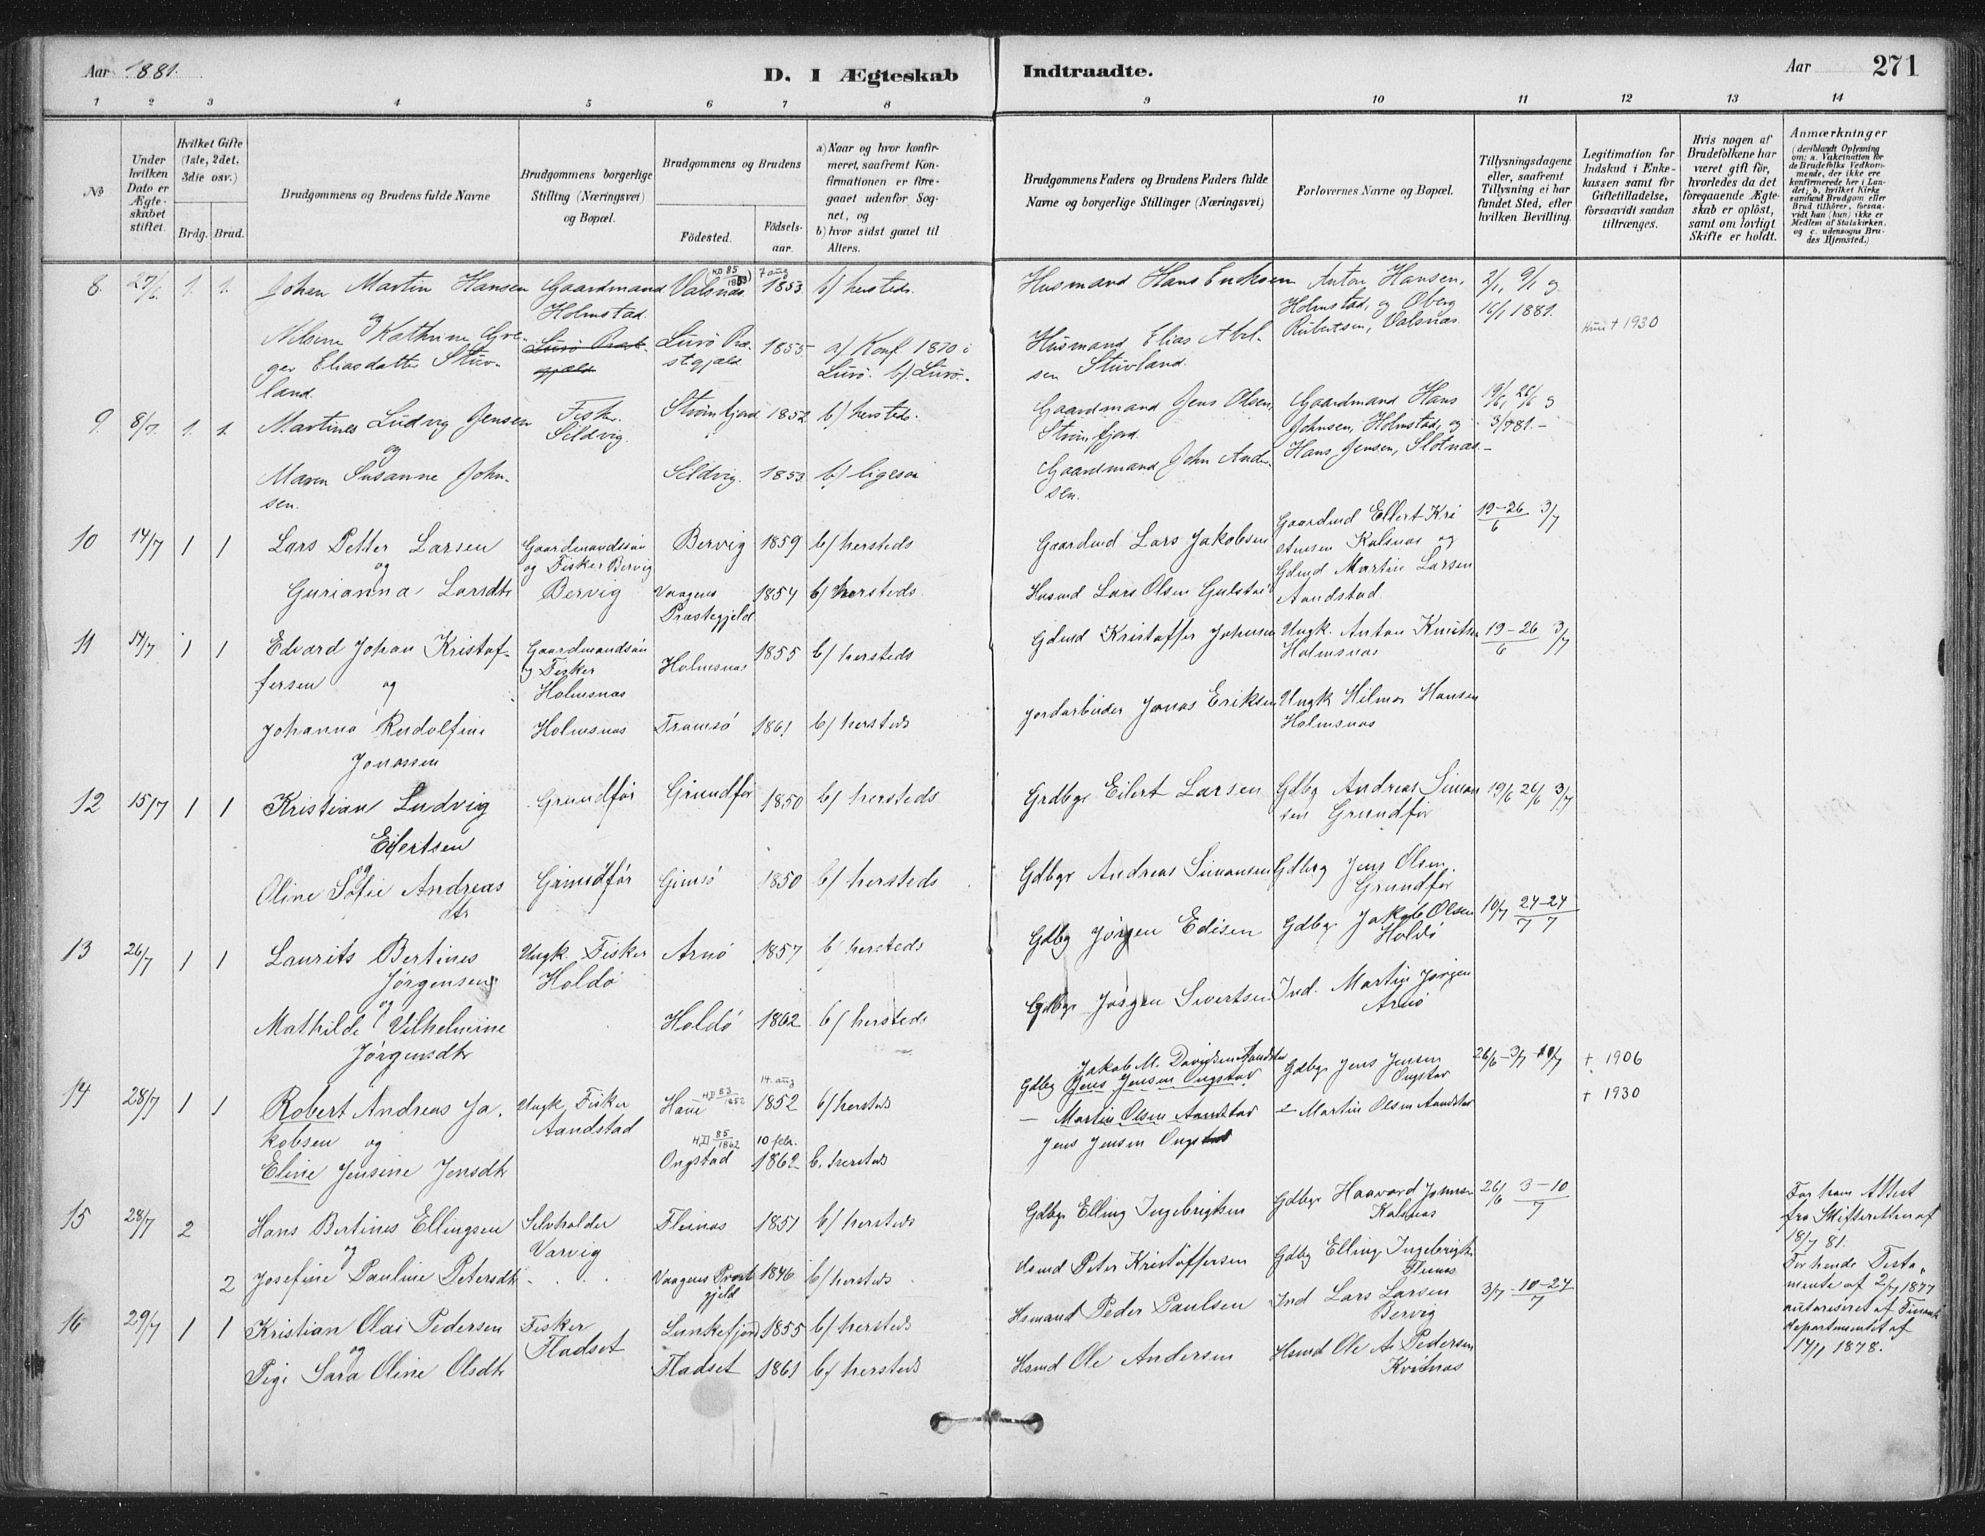 Aar 1881.
D. I Ægteskab
Indtraadte.
Aar
271
1 2 3 4 5 6 7 8
9 10 11 12 13 14
No
Under hvilken Dato er Ægteskabet stiftet.
Hvilket Gifte (1ste, 2det, 3die osv.)
Brdg. Brud.
Brudgommens og Brudens fulde Navne
Brudgommens borgerlige Stilling (Næringsvei) og Bopæl.
Brudgommens og Brudens
Födested.
Födsels-aar.
a) Naar og hvor konfirmeret, saafremt Konfirmationen er foregaaet udenfor Sognet, og
b) hvor sidst gaaet til Alters.
Brudgommens Faders og Brudens Faders fulde Navne og borgerlige Stillinger (Næringsvei)
Forlovernes Navne og Bopæl.
Tillysningsdagene eller, saafremt Tillysning ei har fundet Sted, efter hvilken Bevilling.
Legitimation for Indskud i Enkekassen samt for Giftetilladelse, forsaavidt saadan tiltrænges.
Hvis nogen af Brudefolkene har været gift før, hvorledes da det foregaaende Ægteskab er oplöst, samt om lovligt Skifte er holdt.
Anmærkninger (deriblandt Oplysning om: a. Vakcination for de Brudefolks Vedkommende, der ikke ere konfirmerede her i Landet; b. hvilket Kirkesamfund Brudgom eller Brud tilhörer, forsaavidt han (hun) ikke er Medlem af Statskirken, og c. udensogns Brudes Hjemsted.)
8. 27/6. 1. 1. Johan Martin Hansen Gaardmand Holmstad. Valsnæs 7 aug 1853. b/ hersteds. Husmand Hans Eriksen Anton Hansen, Holmstad, og Oberg Rubertsen, Valsnæs 2/1, 9/1 og 16/1 1881.
og
Kathrine Eliasdatter Stuvland. Lurö Præstgjæld 1855 a/ Konf 1870 i Lurö. b/ Lurö. Husmand Elias Abelsen Stuvland. † 1930
9. 8/7. 1. 1. Martines Ludvig Jensen Fisker Seldvig. Strömfjord 1852 b/ hersteds. Gaardmand Jens Olsen, Strömfjord. Gaardmand Hans Johnsen, Holmstad, og Hans Jensen, Slotnæs 19/6, 26/6 og 3/7 81.
og
Maren Susanne Johnsen. Seldvig. 1853. b/ ligesaa Gaardmand John Andersen.
10 14/7 1 1 Lars Petter Larsen Gaardmandssön og Fisker Bervig Bervig 1859 b/ hersteds Gaardmd Lars Jakobsen Gaardmd Ellert Kristensen Kalsnæs og Gdmd Martin Larsen Aandstad 19-26/6 3/7
og
Gurianna Larsdtr Bervig Vaagens Præstegjeld 1854 b/ hersteds. Husmd Lars Olsen
11 14/7 1 1 Edvard Johan Kristoffersen Gaardmandssön og Fisker Holmsnæs Holmsnæs 1855 b/ hersteds Gdmd Kristoffer Johnsen Ungk. Anton Holmsnæs 19-26/6 3/7
og
Johanna Rudolfine Jonassen Holmsnæs Tromsö 1861 b/ hersteds Jordarbeider Jonas Eriksen Ungk Hilmar Hansen Holmsnæs
12 15/7 1 1 Kristian Ludvig Eilertsen Grundför Grundför 1850 b/ hersteds Grdbgr Eilert Larsen Gdbg Andreas Simonsen Grundför 19/6 26/6 3/7
og
Oline Sofie Andreasdtr Grundför Gimsö 1850 b/ hersteds Gdbgr Andreas Simonsen Gdbrg Jens Olsen Grundför
13 26/7 1 1 Laurits Bertines Jörgensen Ungk. Fisker Holdö Arnö 1857 b/ hersteds Gdbg Jörgen Edisen Gdbgr Jakob Olsen Holdö 10/7 24-24/7 7
og
Mathilde Vilhelmine Jörgensdtr Holdö 1862 b/ hersteds Gdbgr Jörgen Sivertsen Ind. Martin Jörgen Arnö
14 28/7 1 1 Robert Andreas Jakobsen Ungk, Fisker Aandstad H.D. 83/1852 14. aug 1852 b/ hersteds Jakob M. Davidsen Aandstad Gdbg Jens Jensen Ongstad Gdbgr Jens Jensen Ongstad 26/6 - 3/7 10/7 † 1906
og
Eline Jensine Jensdtr H.D 85/1862 Ongstad 10 febr. 1862 b. hersteds — Martin Olsen Aandstad Jens Jensen Ongstad — Martin Olsen Aandstad † 1930
15 28/7 2 Hans Bertines Ellingsen Selvholder Varvig Fleinæs 1851 b/ hersteds Gdbgr Elling Ingebrigtsen Gdbgr Haavard Kalsnæs 26/6 3-10/7 For ham Attest fra Skifteretten af 18/7 81.
og
2 Josefine Pauline Petersdtr Vaagens Præstgjeld 1846 b/ hersteds Hsmd Peter Kristoffersen Gdbg Elling Ingebrigts. Fleinæs For hende Testamente af 2/7 1877 autoriseret af departementet af 17/1 1878.
16 29/7 1 1 Kristian Olai Pedersen Fisker Fladset Lunkefjord 1855 b/ hersteds Hsmand Peder Paulsen Ind Lars Larsen Bervig 3/7 - 10-24/7
og
Pige Sara Oline Olsdtr Fladset 1861 b/ hersteds Hsmd Ole Andersen Hsmd Ole A. Pedersen Kvitnæs